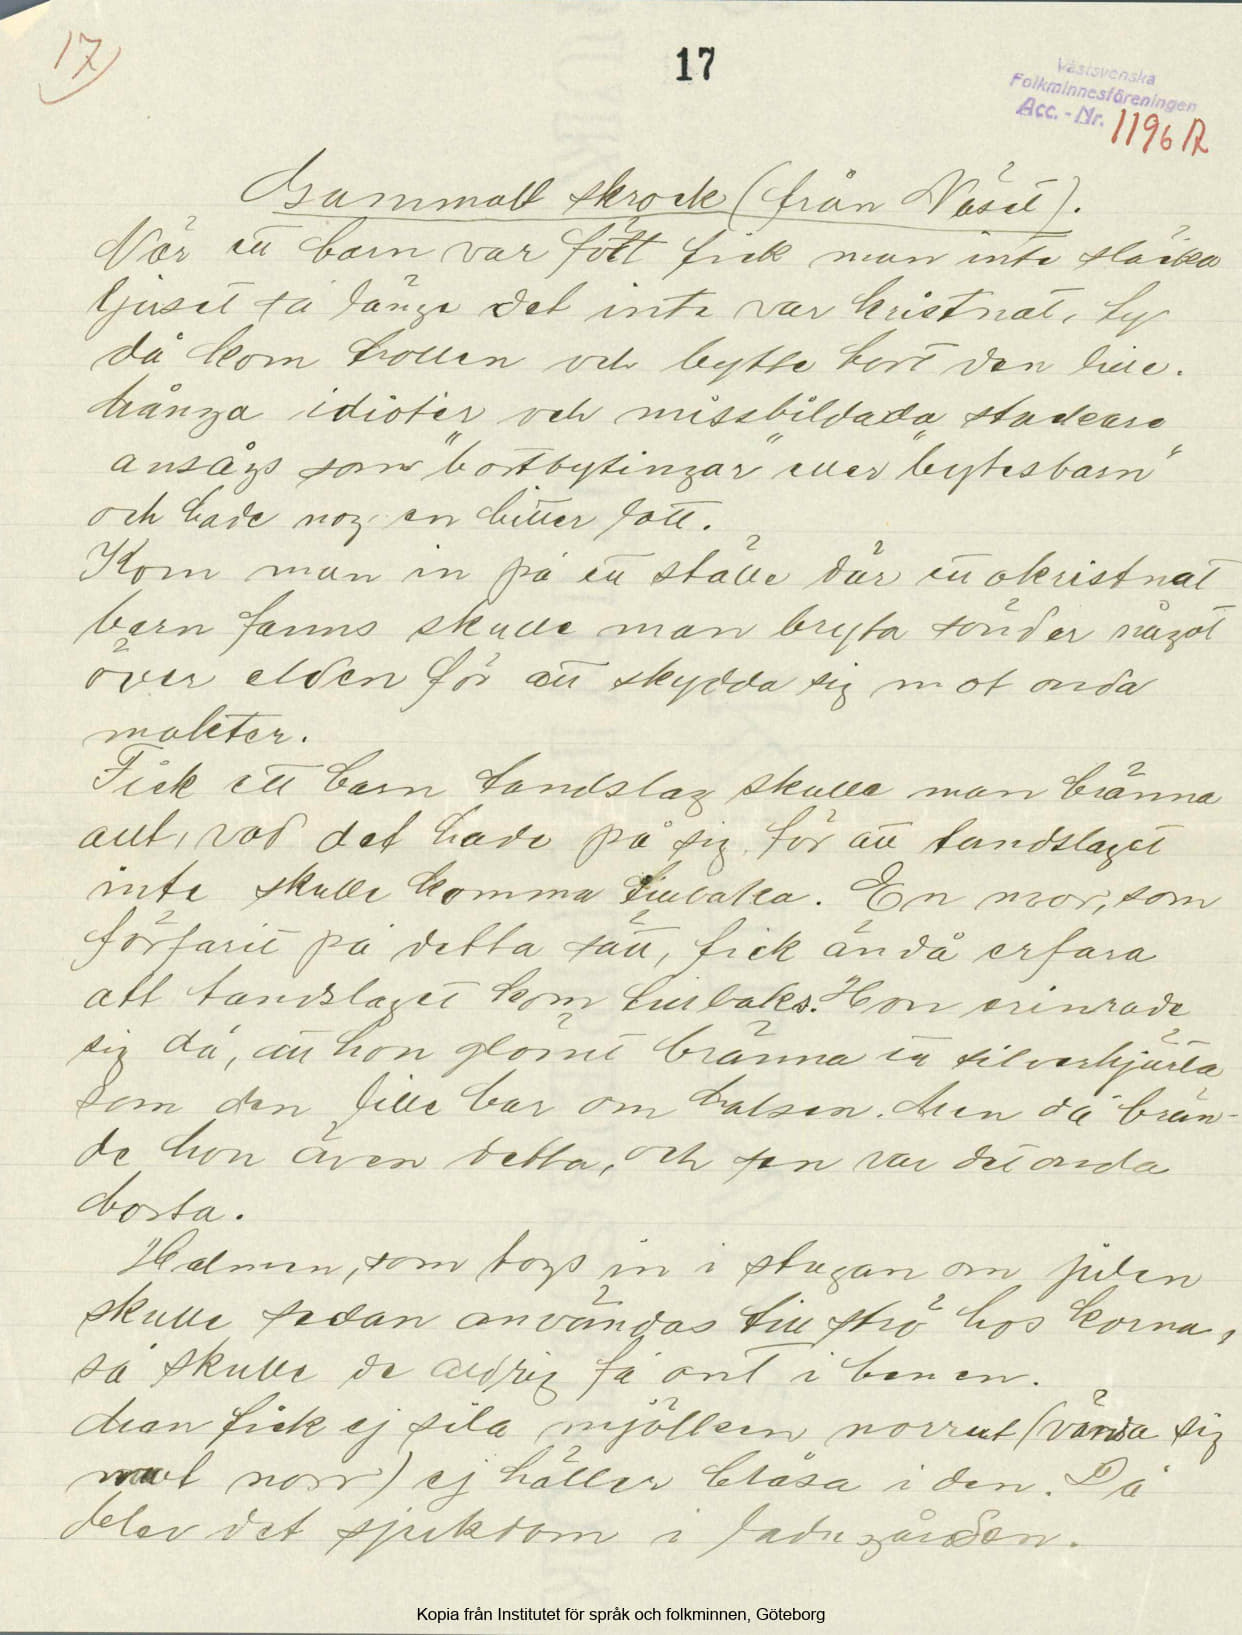 17
17
Västsvenska
Folkminnesföreningen
Acc. - Nr. 1196 R
Gammalt skrock (från Näset).
När ett barn var fött fick man inte släcka
ljuset så länge det inte var kristnat, ty
då kom trollen och bytte bort den lille.
Många idioter och missbildade stackare
ansågs som "bortbytingar" eller "bytesbarn"
och hade nog en bitter lott.
Kom man in på ett ställe där ett okristnat
barn fanns skulle man bryta sönder något
över elden för att skydda sig mot onda
makter.
Fick ett barn tandslag skulle man bränna
allt, vad det hade på sig för att tandslaget
inte skulle komma tillbaka. En mor, som
förfarit på detta sätt, fick ändå erfara
att tandslaget kom tillbaks. Hon erinrade
sig då, att hon glömt bränna ett silverhjärta
som den lille bar om halsen. Men då brän-
de hon även detta, och sen var det onda
borta.
Halmen, som togs in i stugan om julen
skulle sedan användas till strö hos korna,
så skulle de aldrig få ont i benen.
Man fick ej sila mjölken norrut (vända sig
mot norr) ej häller blåsa i den. Då
blev det sjukdom i ladugården.
Kopia från Institutet för språk och folkminnen, Göteborg